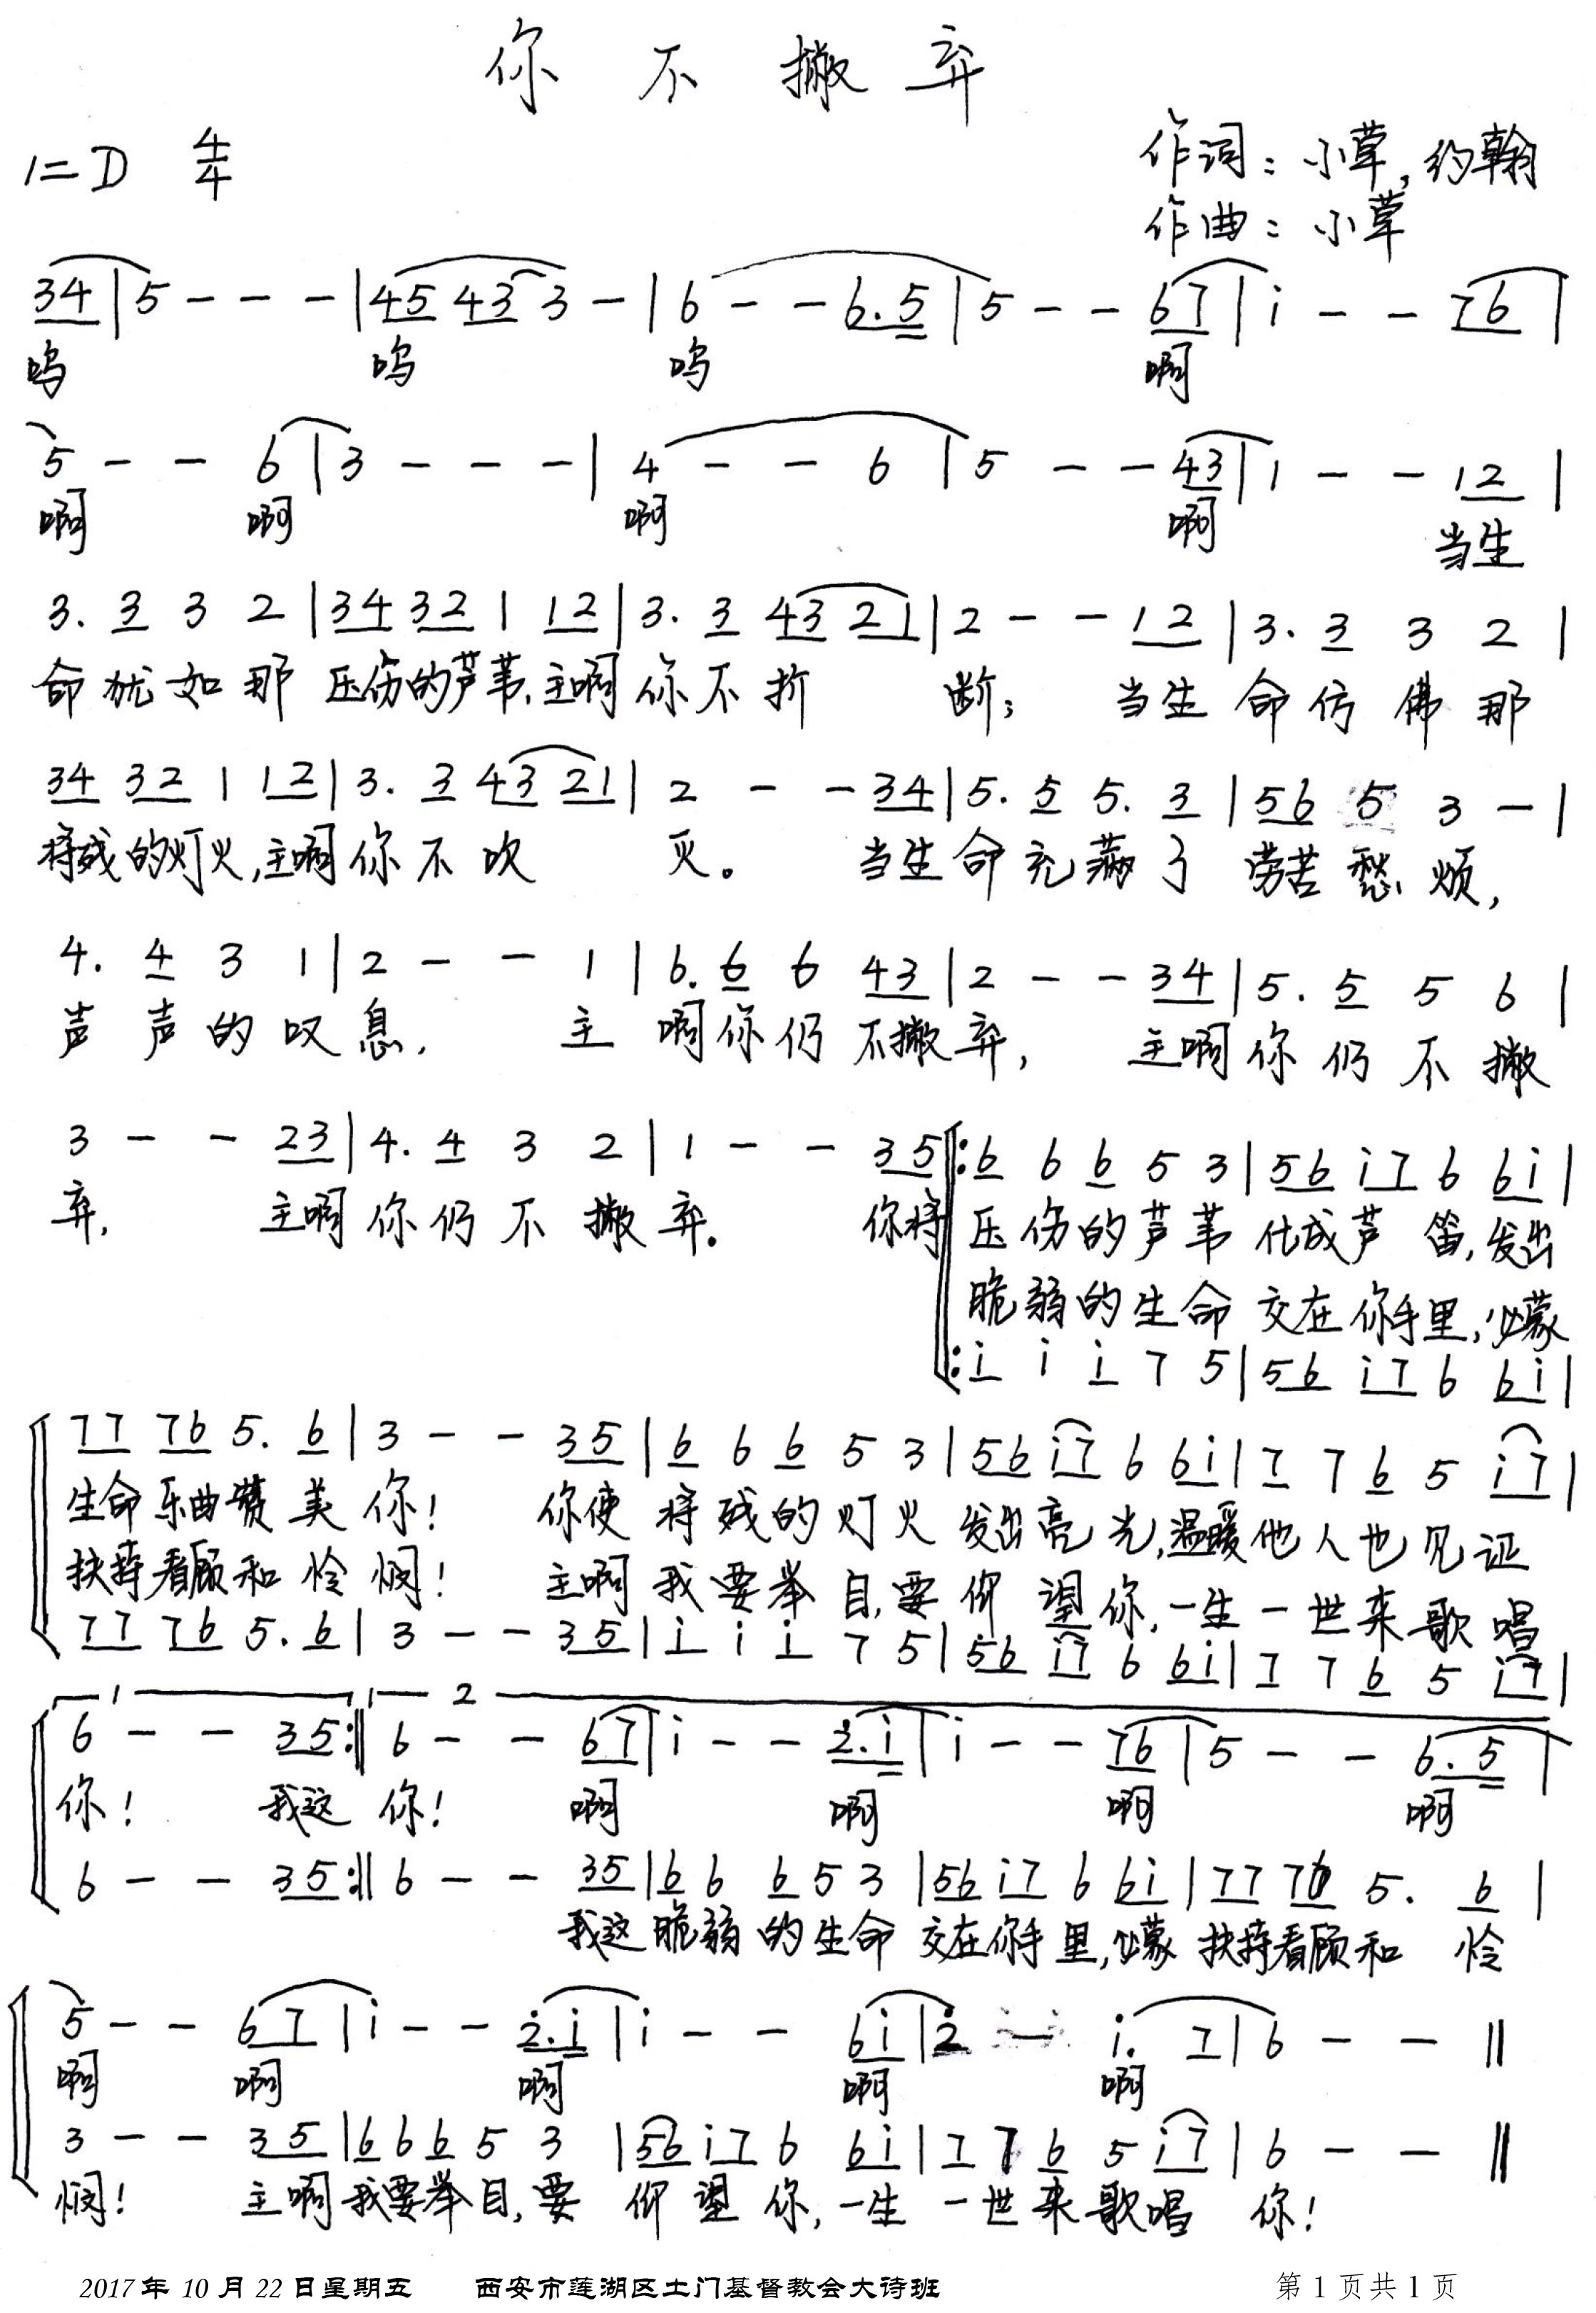 你不撇弃
1=D 4/4
作词：小草，约翰
作曲：小草
34 | 5 - - - | 45 43 3 - | 6 - - 6.5 | 5 - - 67 | i - - 76 |
呜 呜 呜 啊
5 - - 6 | 3 - - - | 4 - - 6 | 5 - - 43 | 1 - - 12 |
啊 啊 啊 啊 当生
3. 3 3 2 | 34 32 1 12 | 3. 3 43 21 | 2 - - 12 | 3. 3 3 2 |
命犹如那 压伤的芦苇,主啊你不折 断; 当生命仿佛那
34 32 1 12 | 3. 3 43 21 | 2 - - 34 | 5. 5 5. 3 | 56 5 3 - |
将残的灯火,主啊你不吹 灭。 当生命充满了 劳苦愁烦,
4. 4 3 1 | 2 - - 1 | 6. 6 6 43 | 2 - - 34 | 5. 5 5 6 |
声声的叹息, 主 啊你仍不撇弃, 主啊你仍不撇
3 - - 23 | 4. 4 3 2 | 1 - - 35 |: 6 6 6 5 3 | 56 i7 6 6i |
弃, 主啊你仍不撇弃. 你将压伤的芦苇 化成芦笛,发出
脆弱的生命 交在你手里,必蒙
|: i i i 7 5 | 56 i7 6 6i |
77 76 5. 6 | 3 - - 35 | 6 6 6 5 3 | 56 i7 6 6i | 7 7 6 5 i7 |
生命乐曲赞美你! 你使将残的灯火 发出亮光,温暖他人也见证
扶持看顾和怜悯! 主啊我要举目,要仰望你,一生一世来歌唱
77 76 5. 6 | 3 - - 35 | i i i 7 5 | 56 i7 6 6i | 7 7 6 5 i7 |
1 2
6 - - 35 :|| 6 - - 67 | i - - 2.i | i - - 76 | 5 - - 6.5 |
你! 我这你! 啊 啊 啊 啊
6 - - 35 :|| 6 - - 35 | 6 6 6 5 3 | 56 i7 6 6i | 77 76 5. 6 |
我这脆弱的生命 交在你手里,必蒙 扶持看顾和 怜
5 - - 67 | i - - 2.i | i - - 6i | 2 - i. 7 | 6 - - ||
啊 啊 啊 啊 啊
3 - - 35 | 6 6 6 5 3 | 56 i7 6 6i | 7 7 6 5 i7 | 6 - - ||
悯! 主啊我要举目,要 仰望你,一生一世来歌唱 你!
2017年10月22日星期五 西安市莲湖区土门基督教会大诗班 第1页共1页